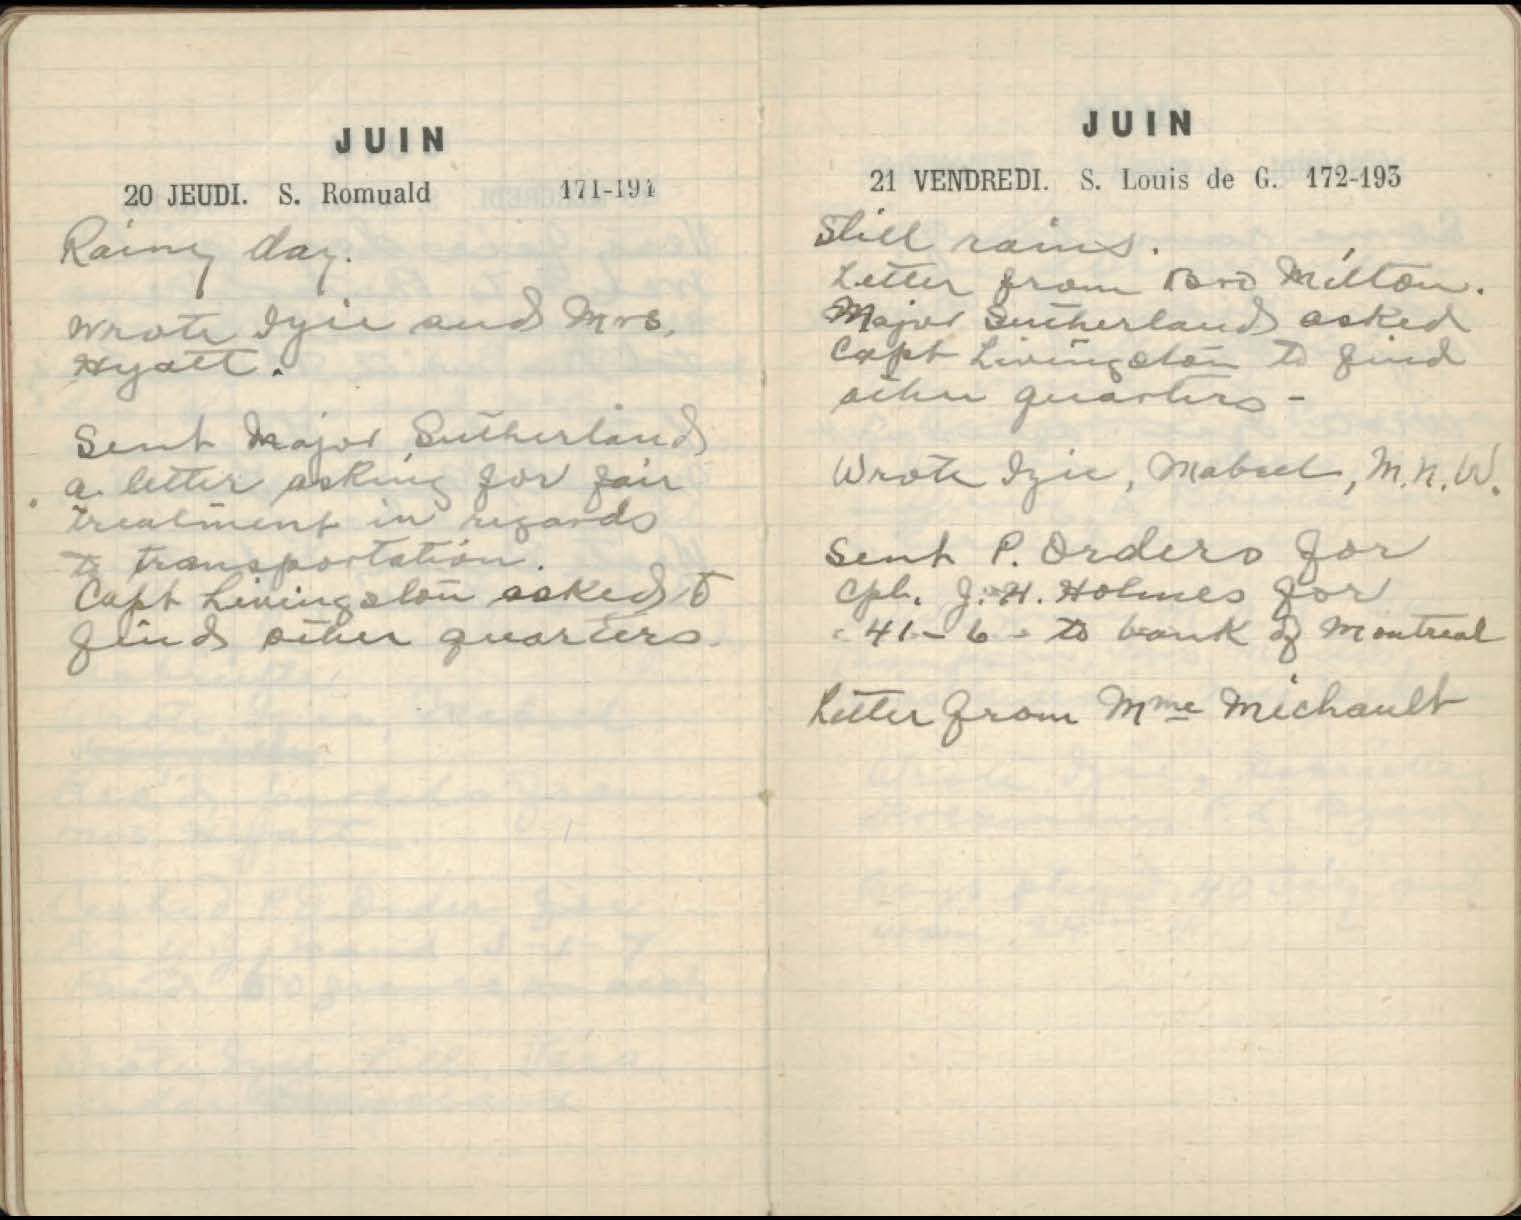 JUIN
20 JEUDI. S. Romuald 171-194
Rainy day.
Wrote Izie and Mrs.
Hyatt.
Sent Major Sutherland
a letter asking for fair
treatment in regards
to transportation.
Capt Livingston asked to
find other quarters.
JUIN
21 VENDREDI. S. Louis de G. 172-193
Still rains.
Letter from Bro Milton.
Major Sutherland asked
Capt Livingston to find
other quarters -
Wrote Izie, Mabel, M.N.W.
Sent P. Orders for
Cpl. J. H. Holmes for
41-6- to bank of Montreal
Letter from Mme Michault